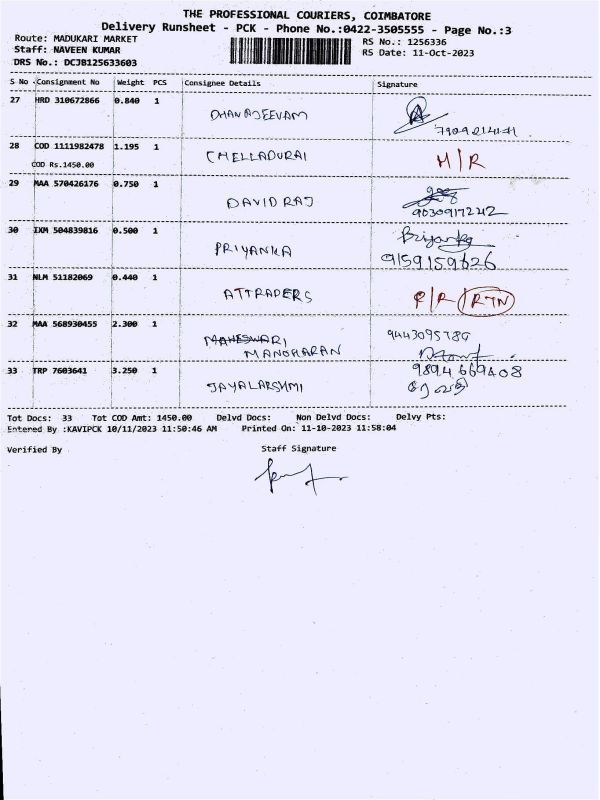 THE PROFESSIONAL COURIERS, COIMBATORE
Delivery Runsheet - PCK - Phone No.:0422-3505555 - Page No.:3
Route: MADUKARI MARKET
Staff: NAVEEN KUMAR
DRS No.: DCJB125633603
RS No.: 1256336
RS Date: 11-Oct-2023
S No Consignment No Weight PCS Consignee Details Signature
27 HRD 310672866 0.840 1 DHANAJEEVAM
28 COD 1111982478 1.195 1 CHELLADURAI M/R
COD Rs.1450.00
29 MAA 570426176 0.750 1 DAVID RAJ
9030917242
30 IXM 504839816 0.500 1 PRIYANKA Priyanka
9159159626
31 NLM 51182069 0.440 1 ATTRADERS R/R/RTN
32 MAA 568930455 2.300 1 MAHESWARI
MANOHARAN
9443095780
33 TRP 7603641 3.250 1 JAYALAKSHMI
9894669408
ரேவதி
Tot Docs: 33 Tot COD Amt: 1450.00 Delvd Docs: Non Delvd Docs: Delvy Pts:
Entered By :KAVIPCK 10/11/2023 11:50:46 AM Printed On: 11-10-2023 11:58:04
Verified By Staff Signature